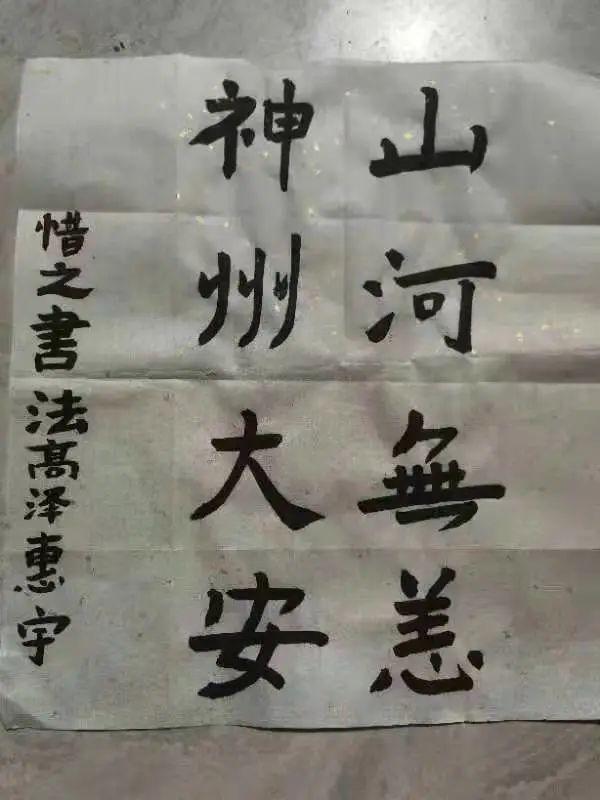 山河無恙
神州大安
惜之書法高泽惠宇